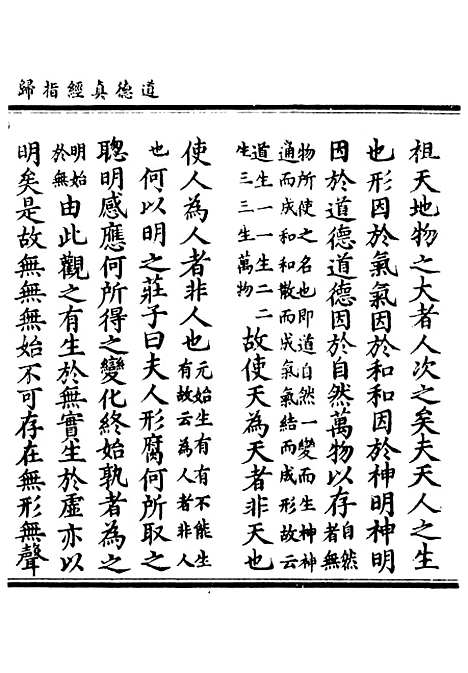 道德真經指歸
祖天地物之大者人次之矣夫天人之生
也形因於氣氣因於和和因於神明神明
因於道德道德因於自然萬物以存自然者無
物所使之名也即道自然一變而生神神
通而成和和散而成氣氣結而成形故云
道生一一生二二
生三三生萬物故使天為天者非天也
使人為人者非人也元始生有有不能生有故云為人者非人
也何以明之莊子曰夫人形腐何所取之
聰明感應何所得之變化終始孰者為之
明始於無由此觀之有生於無實生於虛亦以
明矣是故無無無始不可存在無形無聲